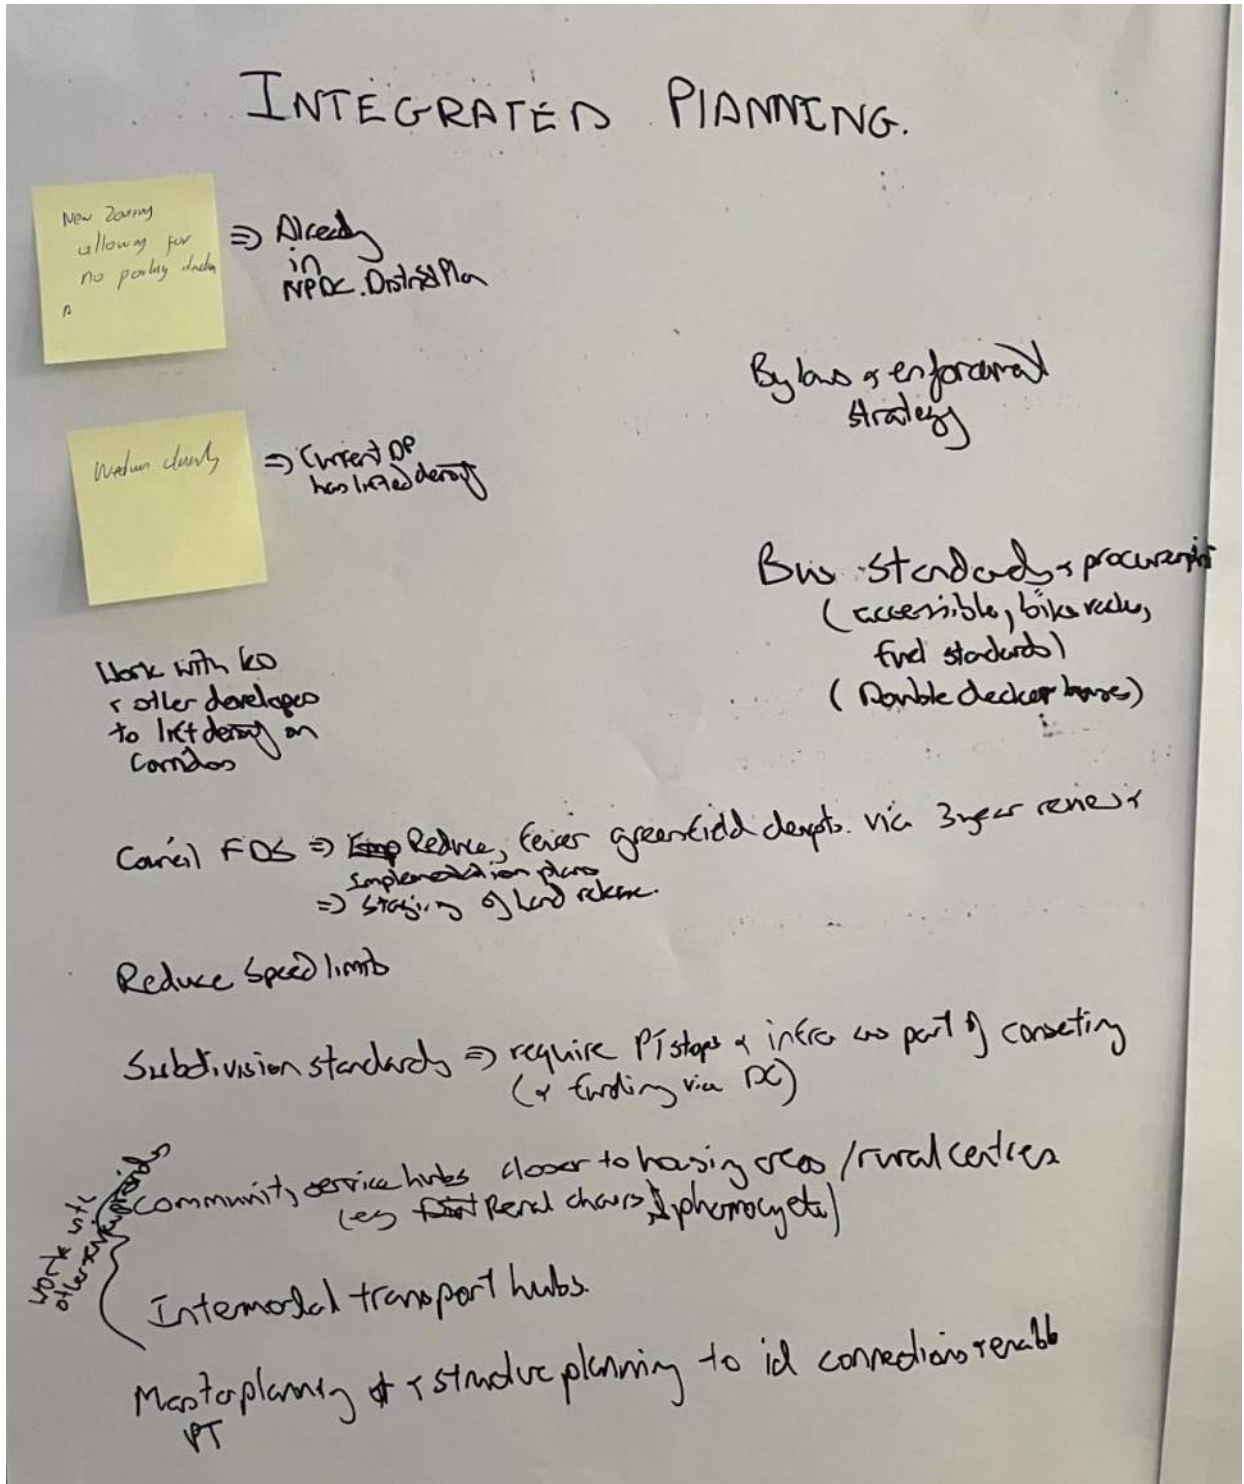 INTEGRATED PLANNING.
New Zoning
allowing for
no parking
⇒ Already
in
NPDC. District Plan
Bylaws & enforcement
strategy
Medium density
⇒ Current DP
has lifted density
Bus standards & procurement
(accessible, bike racks,
fuel standards)
(Double decker buses)
Work with KO
& other developers
to lift density on
corridors
Council FDS ⇒ Reduce, fewer greenfield devpts. via 3 year review &
implementation plans
⇒ staging of land release.
Reduce speed limits
Subdivision standards ⇒ require PT stops & infra as part of conseting
(& funding via DC)
work with
other service providers
Community service hubs closer to housing areas / rural centres
(eg Renal chairs, pharmacy etc)
Intermodal transport hubs.
Masterplanning & structure planning to id connections & enable
PT